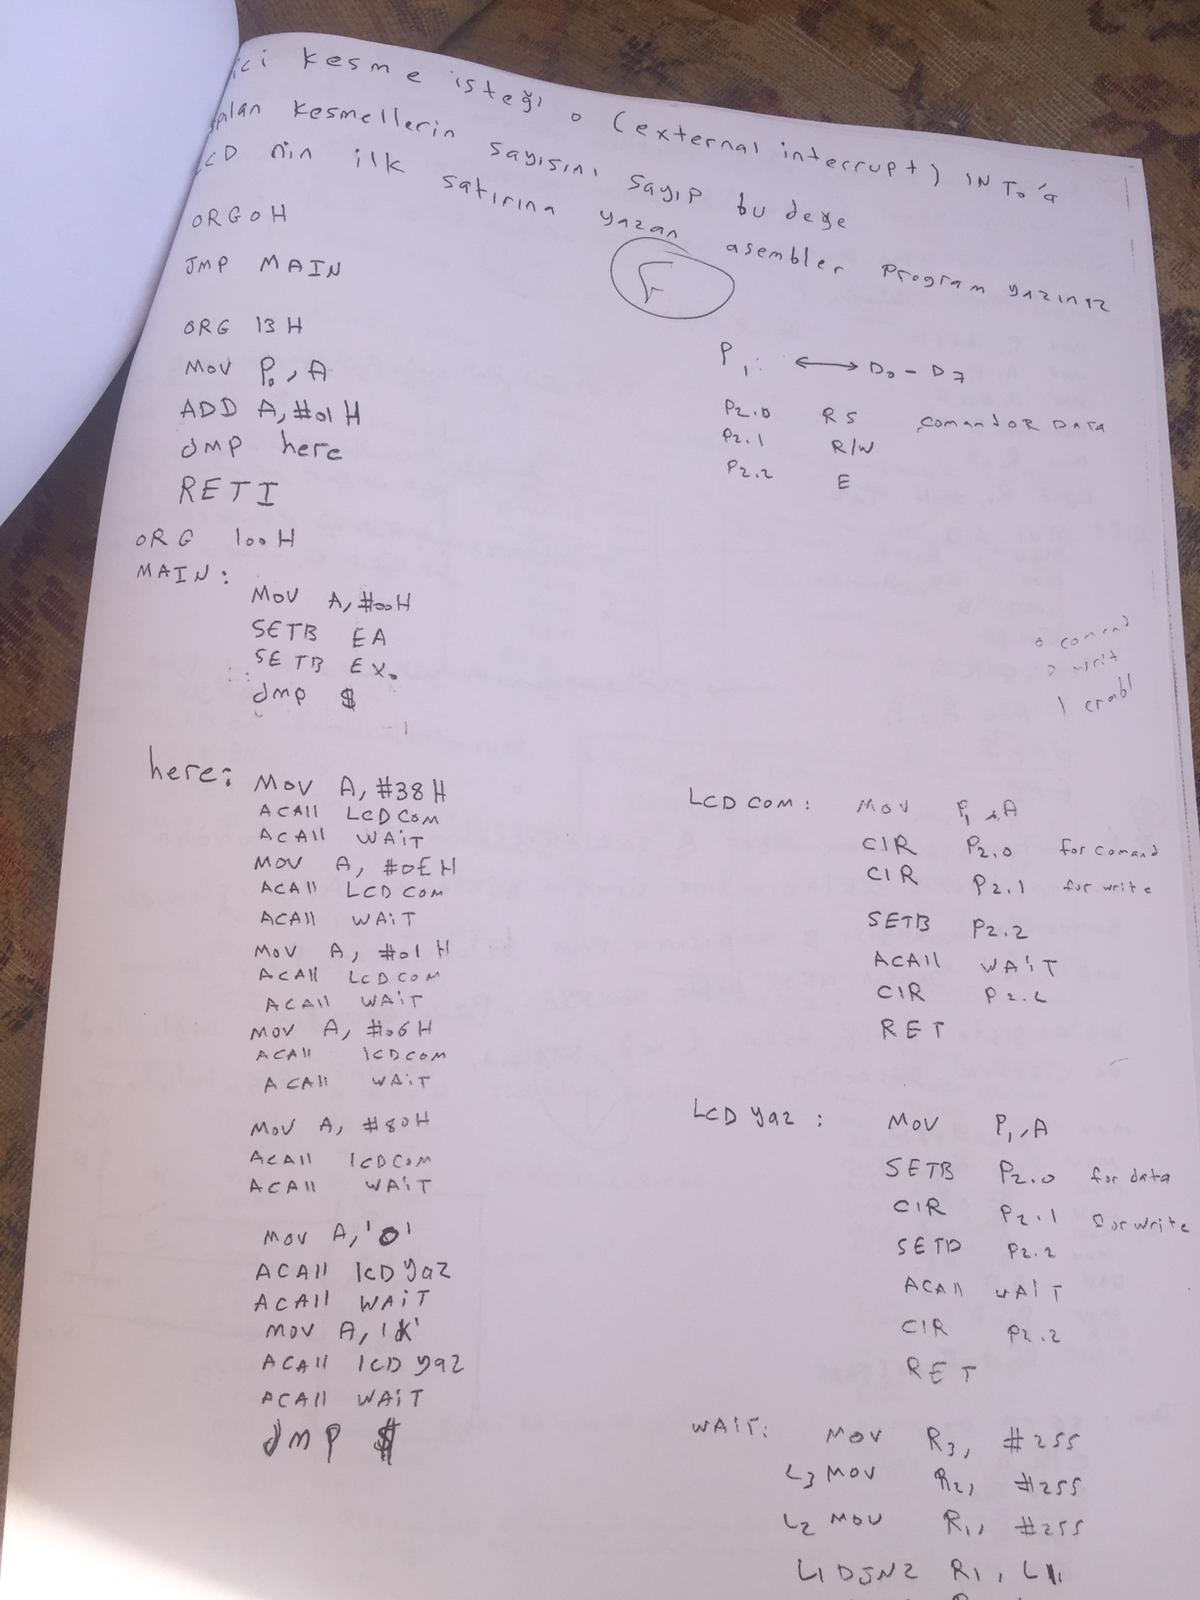 ici kesme isteği 0 (external interrupt) INT0'a
kesmellerin sayısını sayıp bu değe
CD nin ilk satırına yazan asembler program yazınız
ORG 0H
JMP MAIN
ORG 13H
MOV P0, A
ADD A, #01H
JMP here
RETI
ORG 100H
MAIN:
MOV A, #00H
SETB EA
SETB EX0
JMP $
here: MOV A, #38H
ACAll LCDCOM
ACAll WAiT
MOV A, #0EH
ACAll LCDCOM
ACAll WAiT
MOV A, #01H
ACAll LCDCOM
ACAll WAiT
MOV A, #06H
ACAll lCDCOM
ACAll WAiT
MOV A, #80H
ACAll lCDCOM
ACAll WAiT
MOV A, '0'
ACAll lCD yaz
ACAll WAiT
MOV A, 'K'
ACAll lCD yaz
ACAll WAiT
JMP $
P1: ⟷ D0 - D7
P2.0 RS comandOR DATA
P2.1 R/W
P2.2 E
0 comand
0 writ
1 enabl
LCDCOM: MOV P1, A
ClR P2.0 for comand
ClR P2.1 for write
SETB P2.2
ACAll WAiT
ClR P2.2
RET
LCD yaz: MOV P1, A
SETB P2.0 for data
ClR P2.1 for write
SETB P2.2
ACAll WAiT
ClR P2.2
RET
WAIT: MOV R3, #255
L3 MOV R2, #255
L2 MOV R1, #255
L1 DJNZ R1, L1